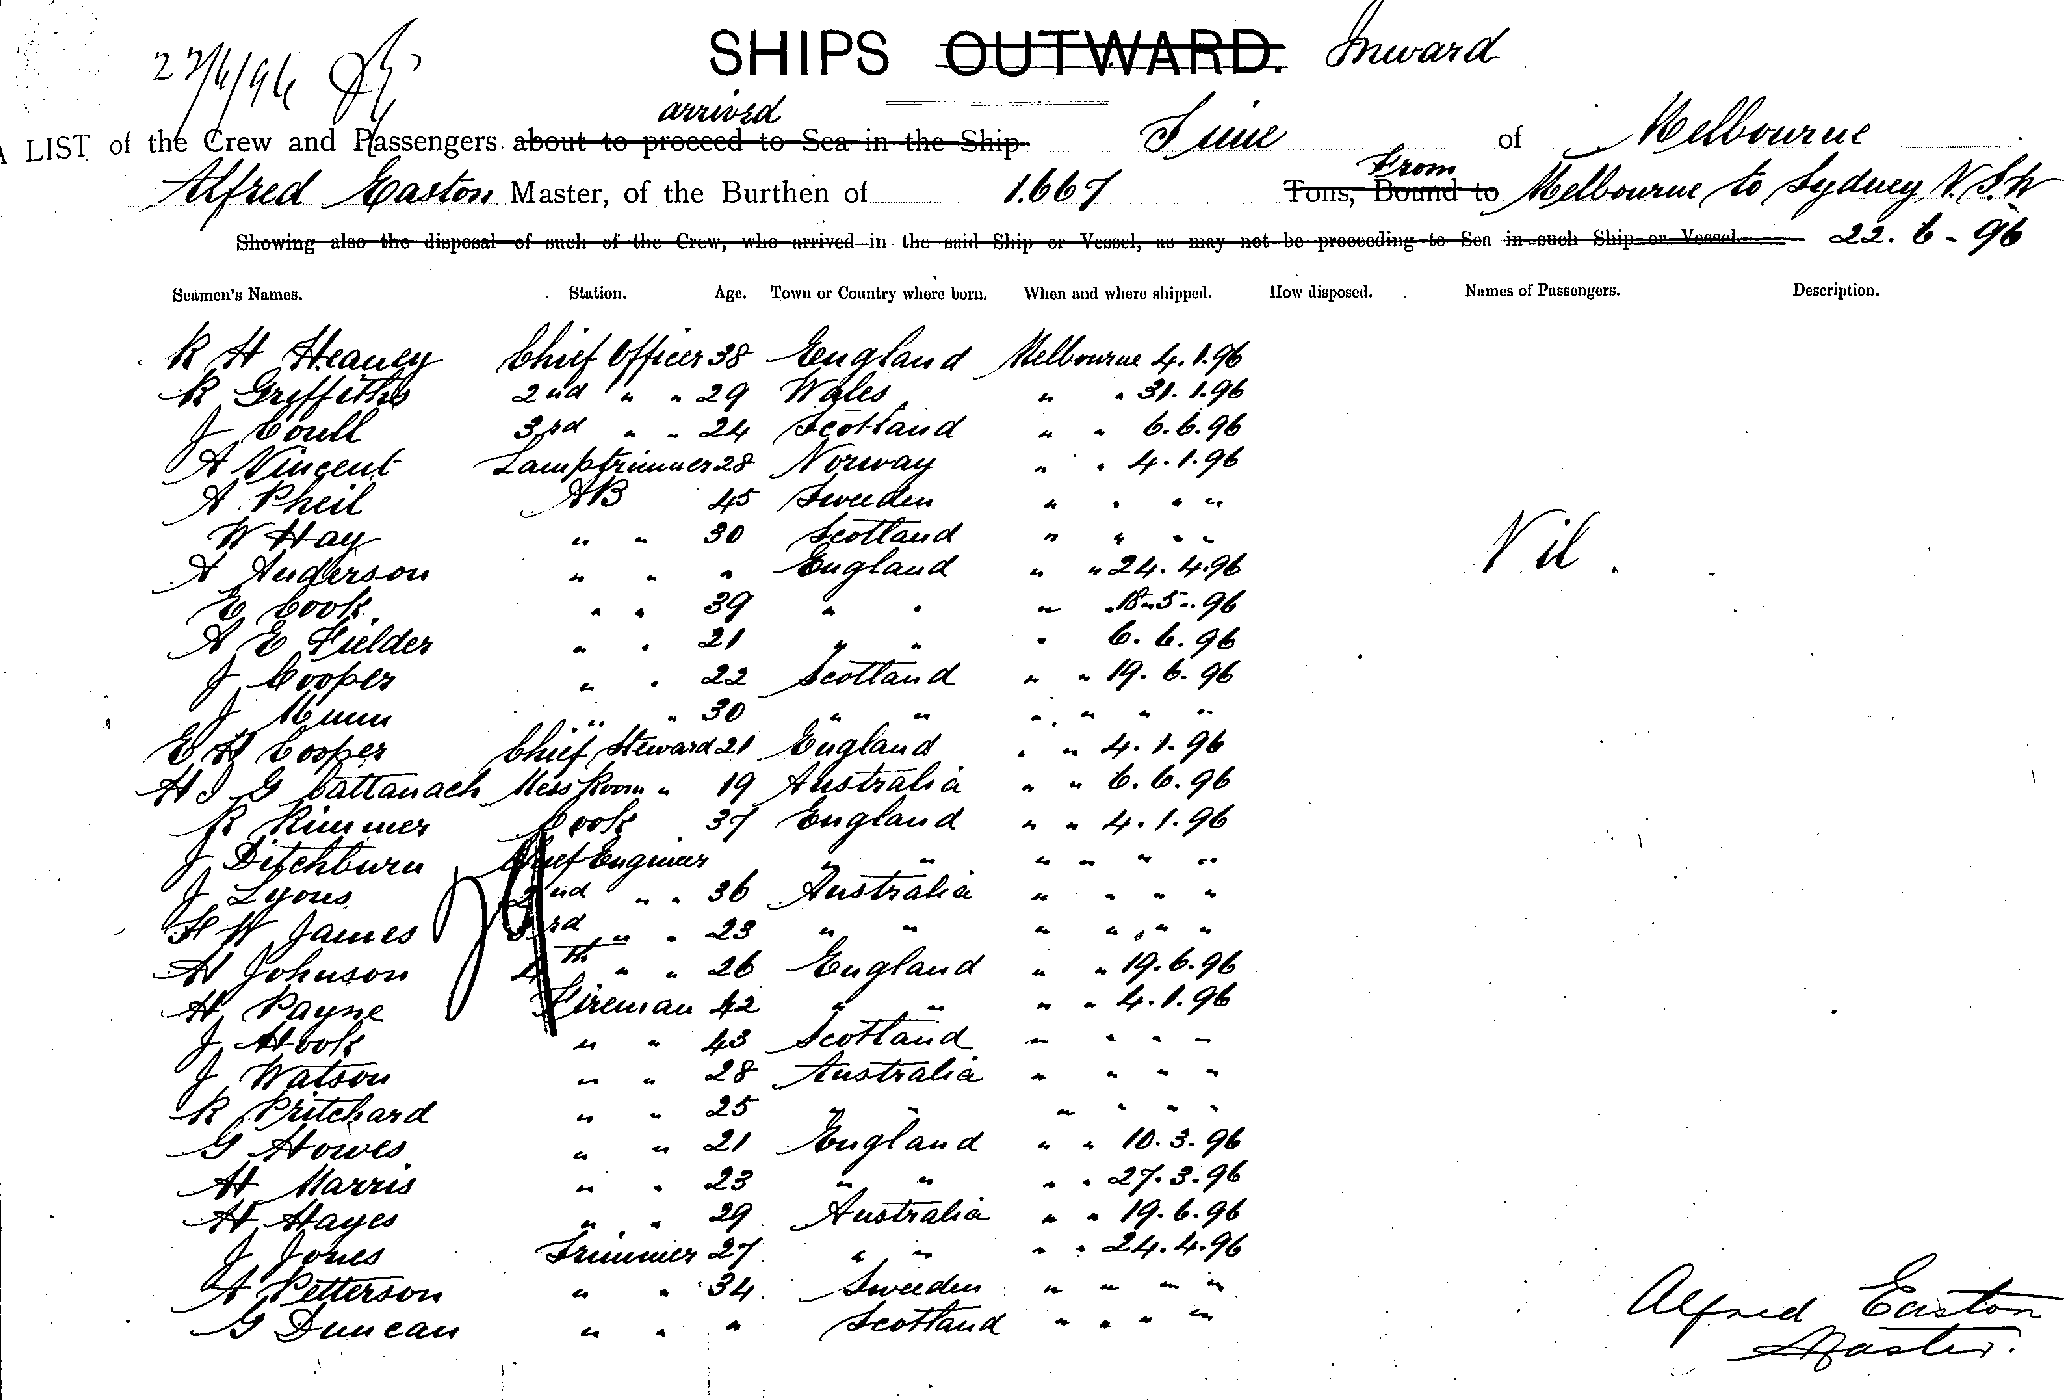 22/6/96
SHIPS OUTWARD. Inward
arrived
A LIST of the Crew and Passengers about to proceed to Sea in the Ship Time of Melbourne
From
Alfred Easton Master, of the Burthen of 1.667 Tons, Bound to Melbourne to Sydney N.S.W
Showing also the disposal of such of the Crew, who arrived in the said Ship or Vessel, as may not be proceeding to Sea in such Ship or Vessel. 22.6-96
Seamen's Names. Station. Age. Town or Country where born. When and where shipped. How disposed. Names of Passengers. Description.
R H Heaney Chief Officer 38 England Melbourne 4.1.96
R Griffiths 2nd " " 29 Wales " " 31.1.96
J Coull 3rd " " 24 Scotland " " 6.6.96
A Vincent Lamptrimmer 28 Norway " " 4.1.96
A Pheil AB 45 Sweeden " " " "
W Hay " " 30 Scotland " " " "
Nil.
A Anderson " " " England " " 24.4.96
E Cook " " 39 " " " " 18-5-96
A E Fielder " " 21 " " " 6.6.96
J Cooper " " 22 Scotland " " 19.6.96
J Munn " " 30 " " " " " "
E H Cooper Chief Steward 21 England " " 4.1.96
H J G Cattanach Mess Room " 19 Australia " " 6.6.96
R Rimmer Cook 37 England " " 4.1.96
J Ditchburn Chief Engineer " " " " " "
J Lyons 2nd " " 36 Australia " " " "
F W James 3rd " " 23 " " " " " "
H Johnson 4th " " 26 England " " 19.6.96
H Payne Fireman 42 " " " " 4.1.96
J Hook " " 43 Scotland " " " "
J Watson " " 28 Australia " " " "
R Pritchard " " 25 " " " " " "
G Howes " " 21 England " " 10.3.96
H Harris " " 23 " " " " 27.3.96
H Hayes " " 29 Australia " " 19.6.96
J Jones Trimmer 27 " " " " 24.4.96
A Petterson " " 34 Sweeden " " " "
G Duncan " " " Scotland " " " "
Alfred Easton
Master.